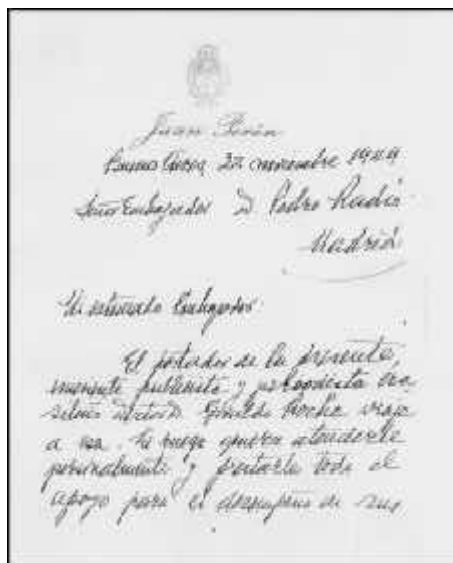 Juan Perón
Buenos Aires 22 noviembre 1949
Señor Embajador D Pedro Radío
Madrid
Mi estimado Embajador:
El portador de la presente,
eminente publicista y
Roche viaja
a esa. Le ruego quiera atenderle
personalmente y prestarle todo el
apoyo para el desempeño de sus